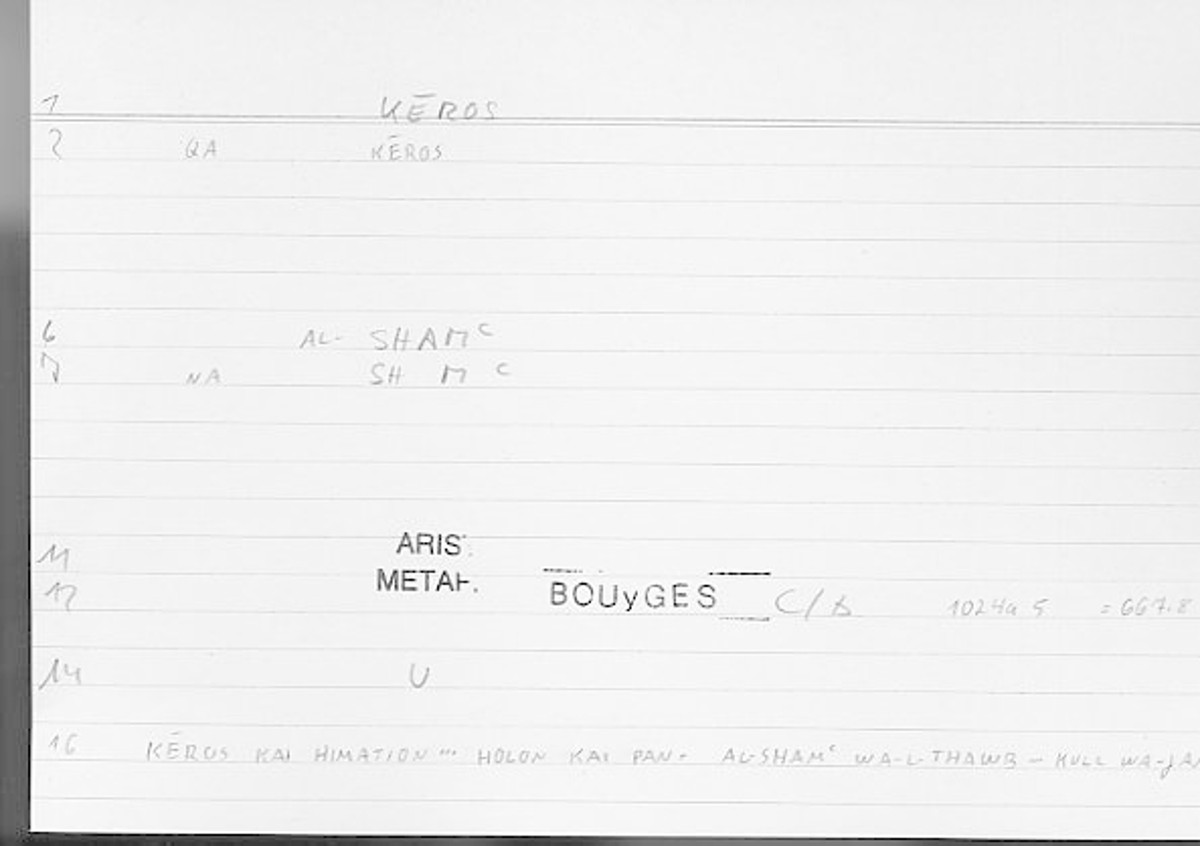 1 KĒROS
2 QA KĒROS
6 AL- SHAMᶜ
7 NA SH M ᶜ
11 ARIS.
12 METAF. BOUyGES C/B 1024a 5 = 667.8
14 U
16 KĒROS KAI HIMATION ... HOLON KAI PAN - AL-SHAMᶜ WA-L-THAWB - KULL WA-JA